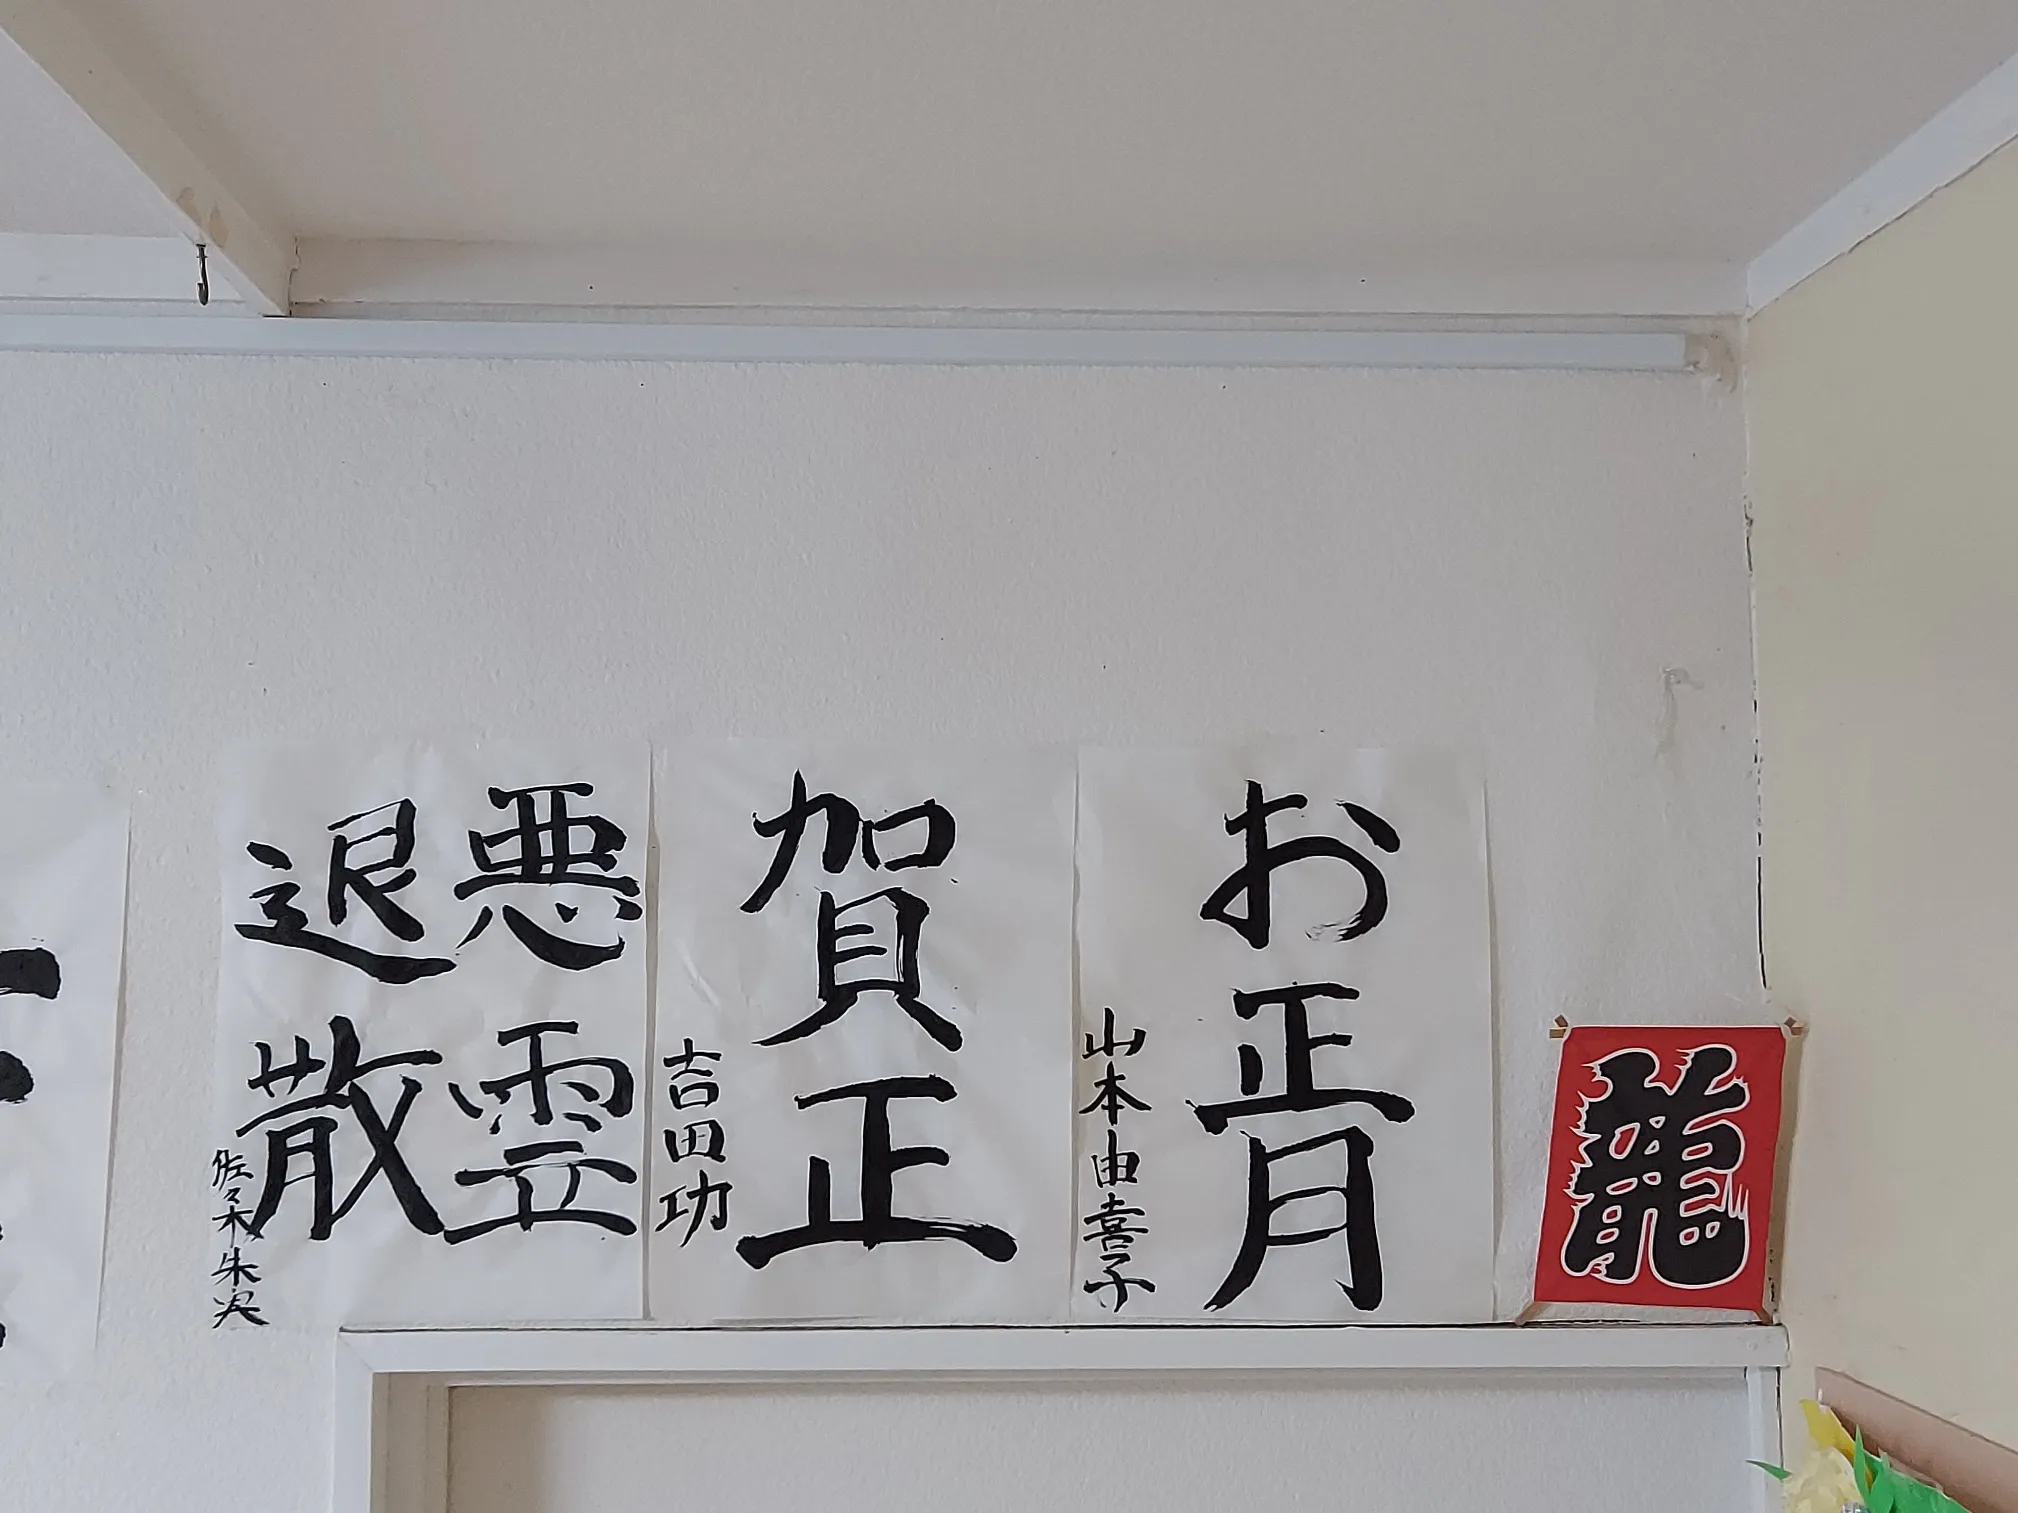 お正月
山本由喜子
賀正
吉田功
悪霊
退散
佐々木朱実
龍